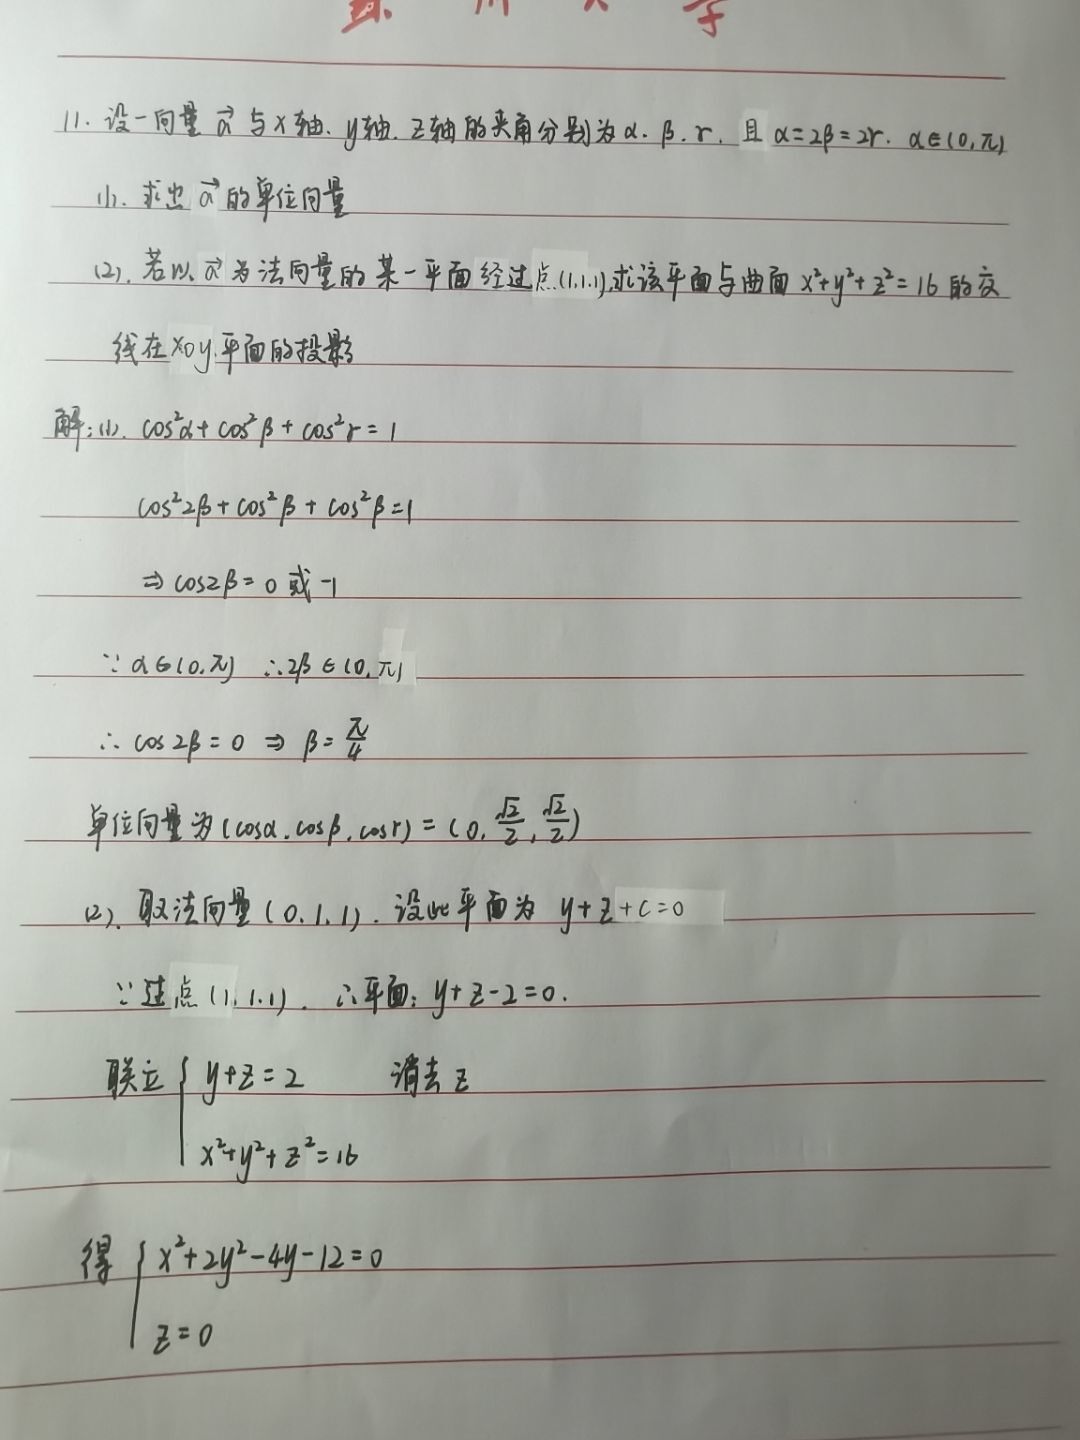 11. 设一向量 a⃗ 与x轴、y轴、z轴的夹角分别为α、β、r，且 α=2β=2r，α∈(0,π)
(1). 求出 a⃗ 的单位向量
(2). 若以 a⃗ 为法向量的某一平面经过点(1,1,1),求该平面与曲面 x²+y²+z²=16 的交
线在xoy平面的投影
解:(1). cos²α+cos²β+cos²r=1
cos²2β+cos²β+cos²β=1
⇒ cos2β=0 或 -1
∵ α∈(0,π) ∴2β∈(0,π)
∴ cos2β=0 ⇒ β=π/4
单位向量为(cosα,cosβ,cosr)=(0,√2/2,√2/2)
(2). 取法向量(0,1,1)，设此平面为 y+z+c=0
∵过点(1,1,1)，∴平面: y+z-2=0.
联立 { y+z=2 消去z
x²+y²+z²=16
得 { x²+2y²-4y-12=0
z=0